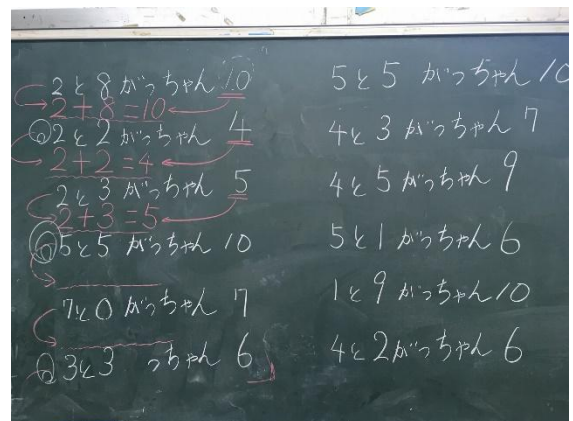 2と8がっちゃん 10
2+8=10
2と2がっちゃん 4
2+2=4
2と3がっちゃん 5
2+3=5
5と5がっちゃん 10
7と0がっちゃん 7
3と3 っちゃん 6
5と5 がっちゃん 10
4と3 がっちゃん 7
4と5 がっちゃん 9
5と1 がっちゃん 6
1と9 がっちゃん 10
4と2がっちゃん 6